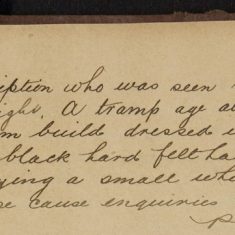 iption who was seen
ight. A tramp age a
m build dressed i
black hard felt ha
ying a small whi
se cause enquiries